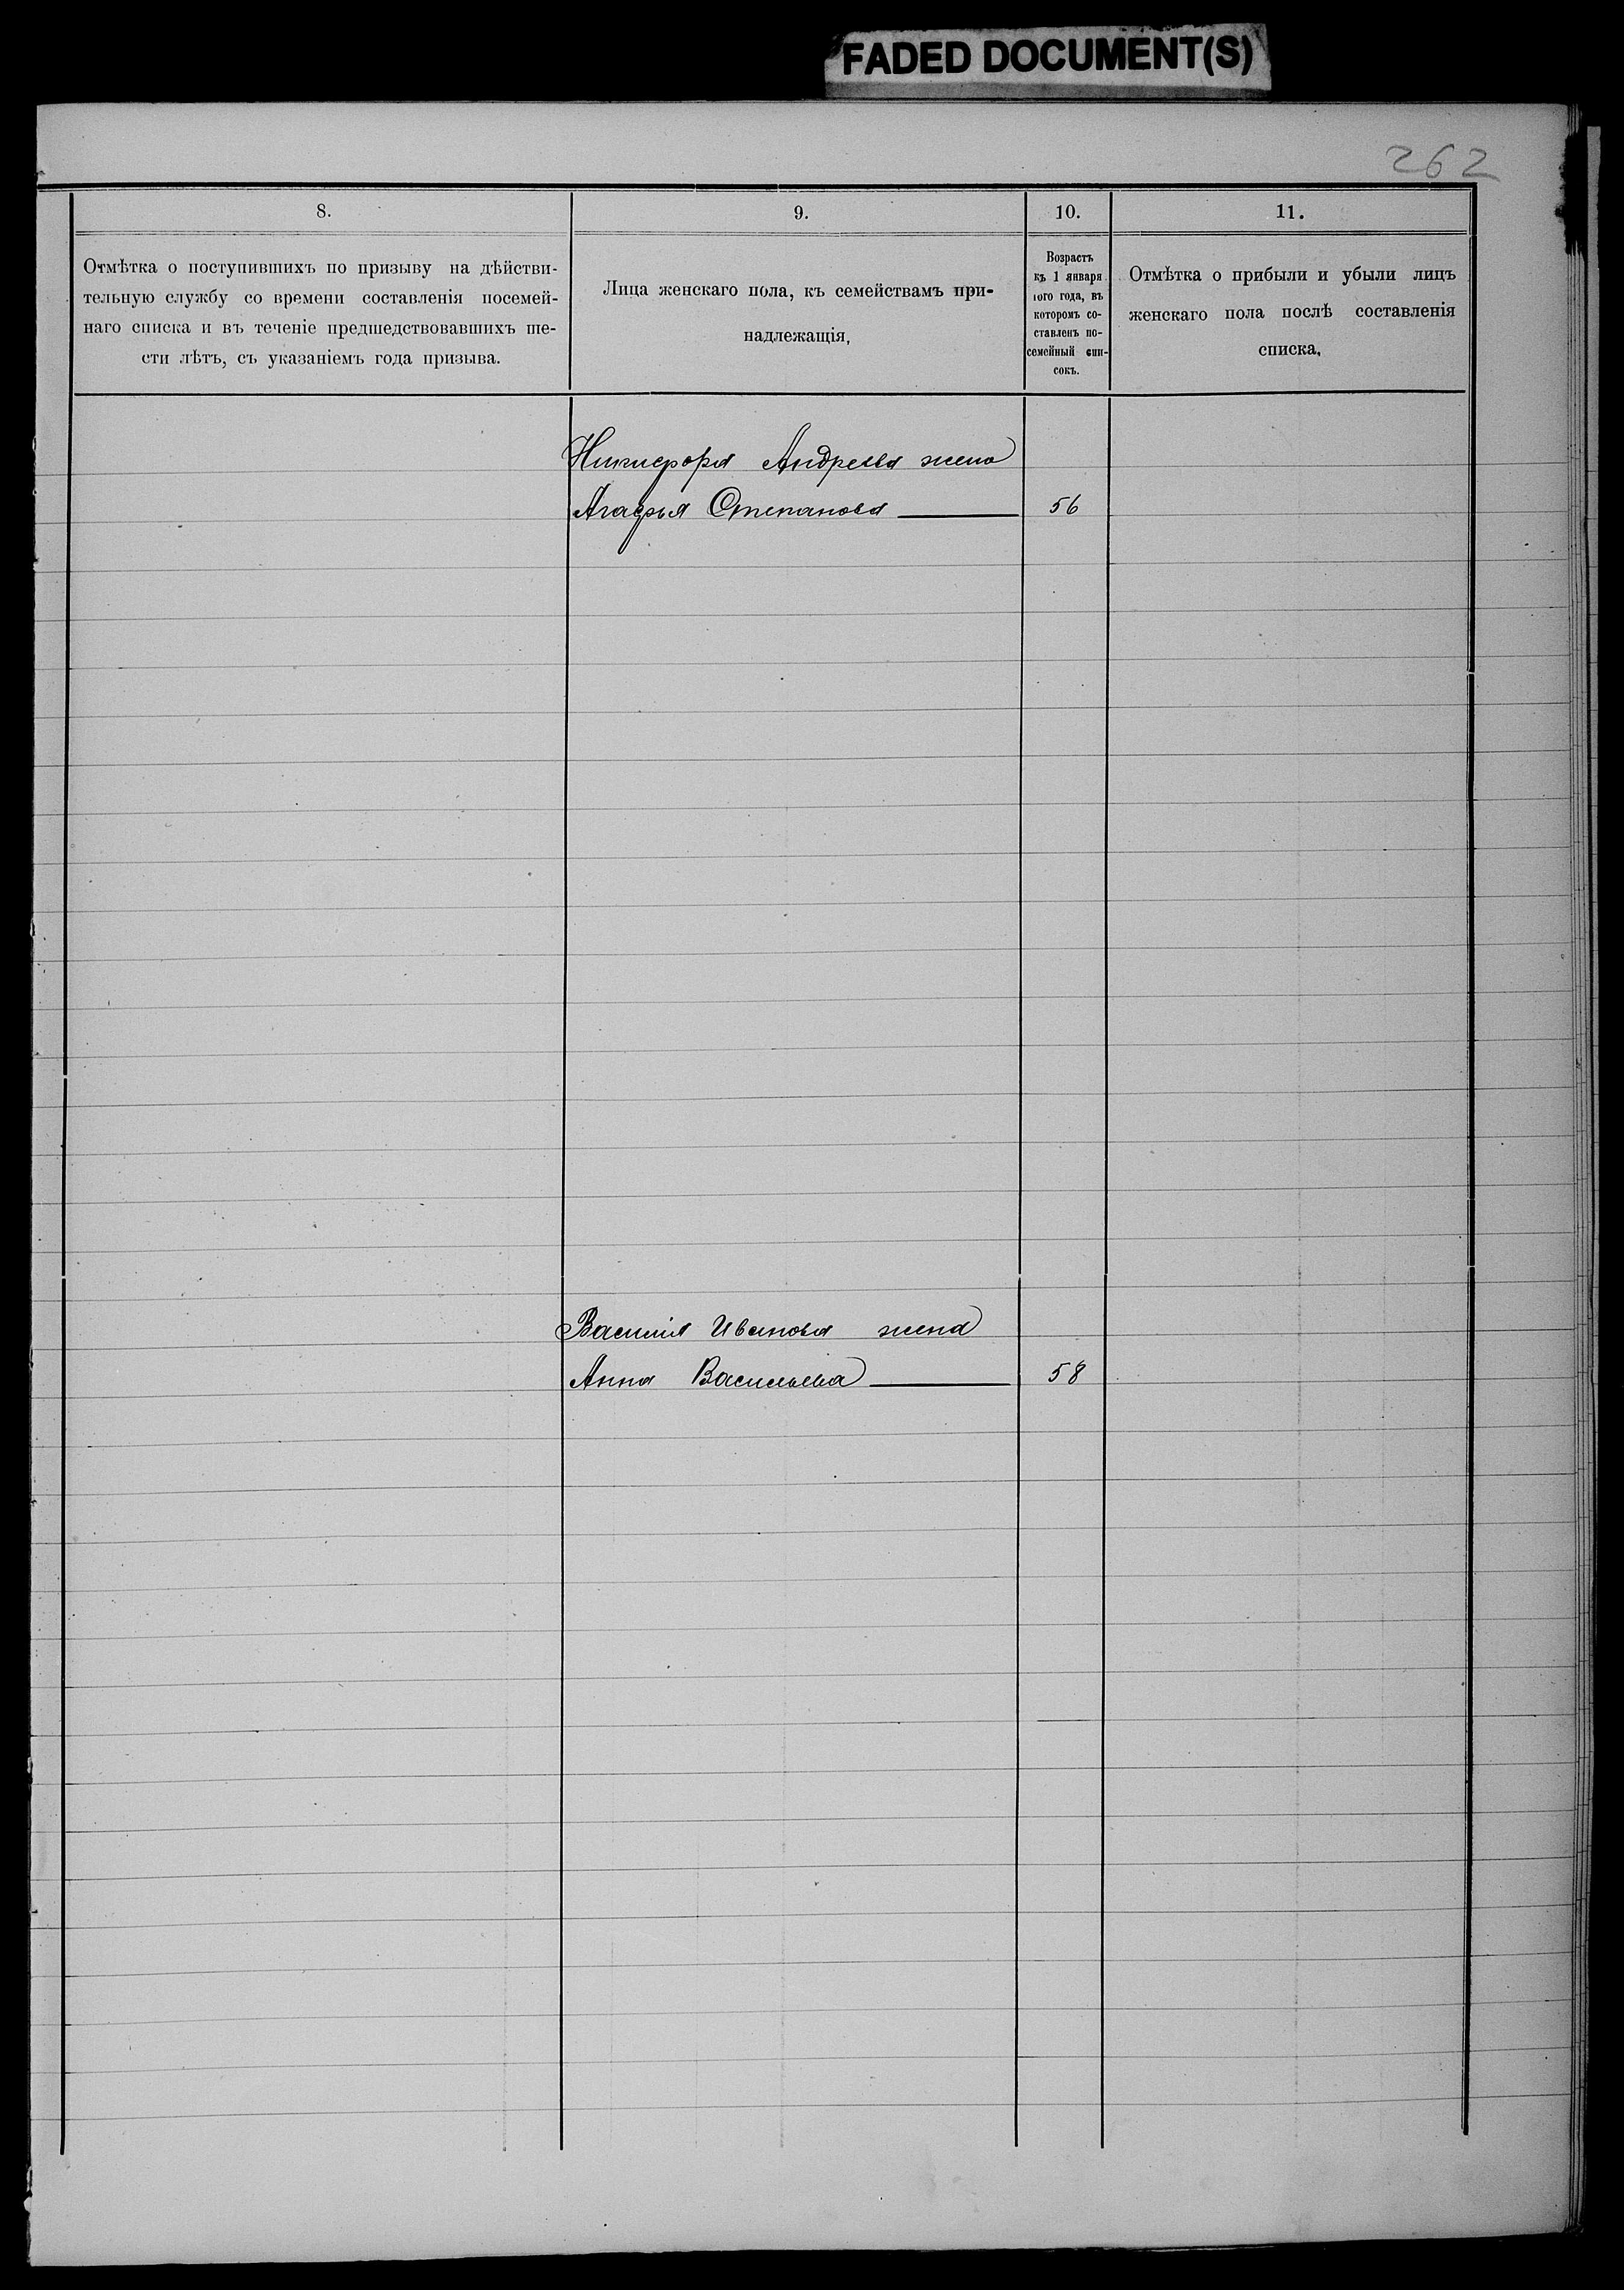 FADED DOCUMENT(S)
262
8.
Отмѣтка о поступившихъ по призыву на дѣйстви-
тельную службу со времени составленія посемей-
наго списка и въ теченіе предшедствовавшихъ ше-
сти лѣтъ, съ указаніемъ года призыва.
9.
Лица женскаго пола, къ семействамъ при-
надлежащія,
10.
Возрастъ
къ 1 января
того года, въ
которомъ со-
ставленъ по-
семейный спи-
сокъ.
11.
Отмѣтка о прибыли и убыли лицъ
женскаго пола послѣ составленія
списка,
Никифора Андреева жена
Агафья Степанова 56
Василія Иванова жена
Анна Васильева 58